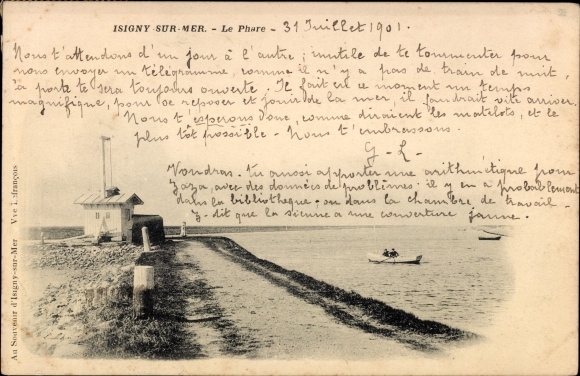 ISIGNY-SUR-MER. - Le Phare - 31 Juillet 1901.
Nous t'attendons d'un jour à l'autre; inutile de te tourmenter pour
nous envoyer un télégramme, comme il n'y a pas de train de nuit,
la porte te sera toujours ouverte. Il fait en ce moment un temps
magnifique, pour se reposer et jouir de la mer, il faudrait vite arriver.
Nous t'esperons donc, comme diraient les matelots, et le
plus tôt possible - Nous t'embrassons.
G - L -
Voudras-tu aussi apporter une arithmétique pour
Zaza, avec des données de problèmes. il y en a probablement
dans la bibliothèque, ou dans la chambre de travail -
Z. dit que la sienne a une couverture jaune.
Au Souvenir d'Isigny-sur-Mer Vve Lefrançois